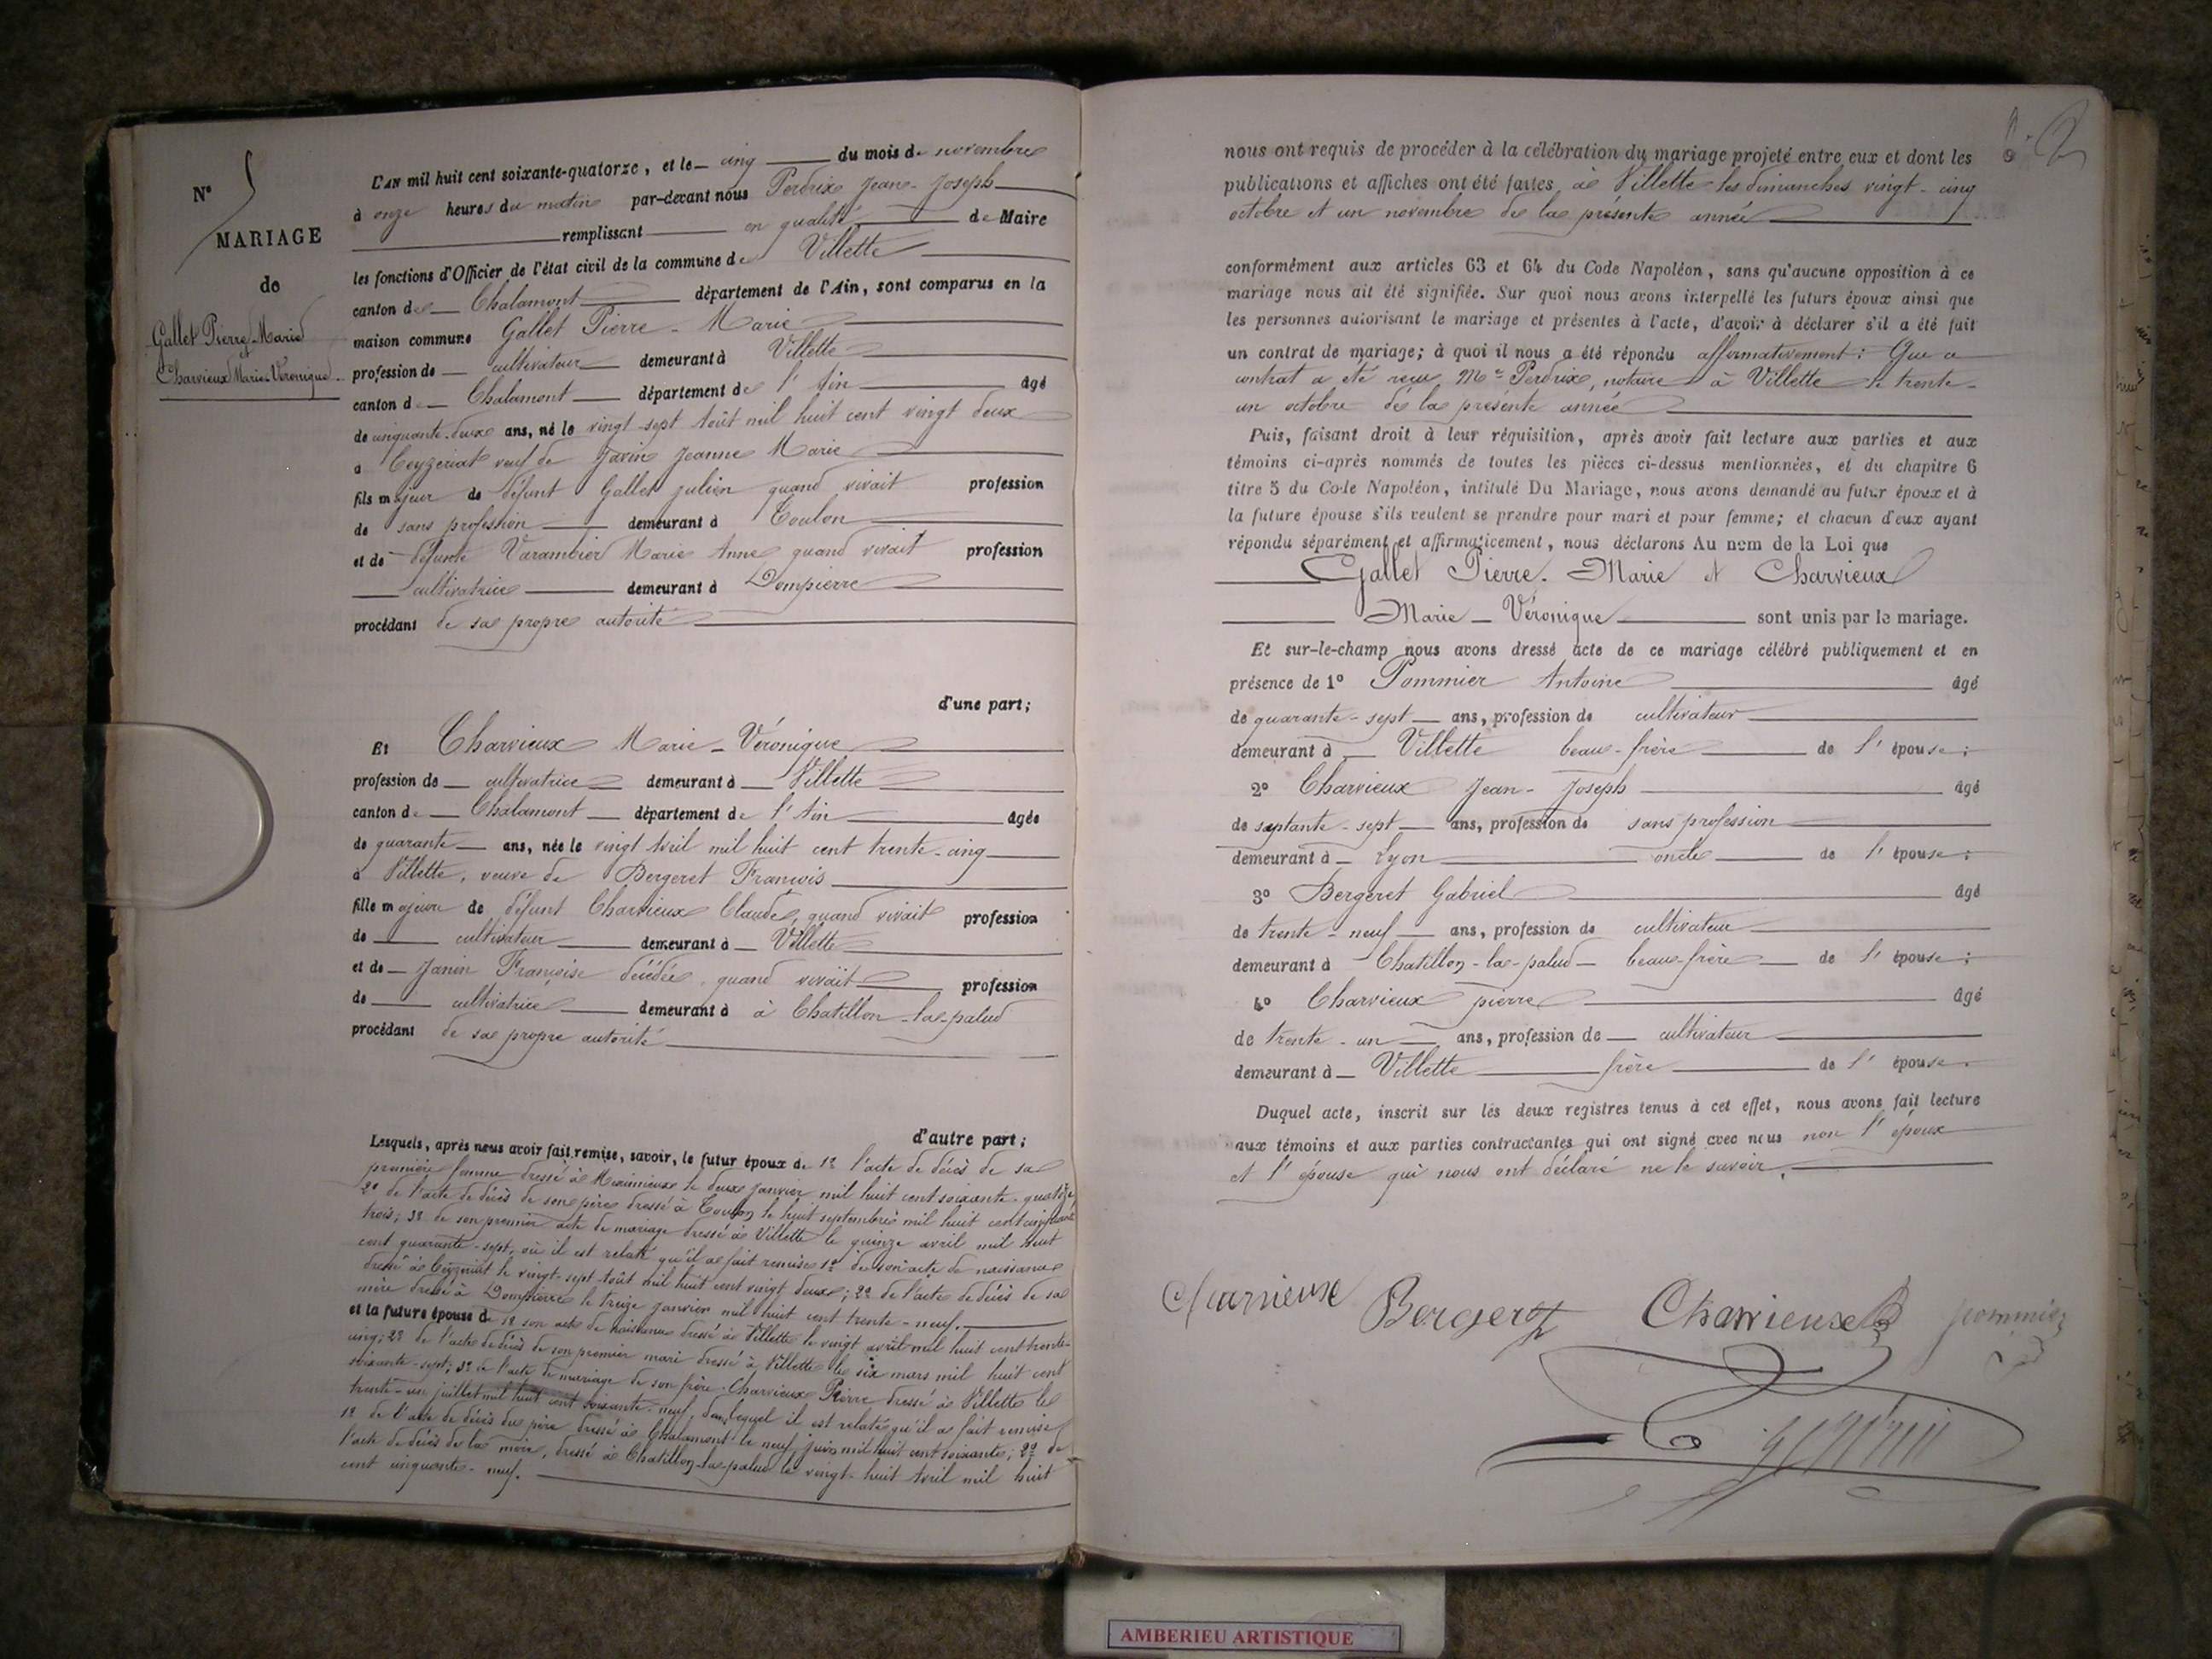 N° 5
MARIAGE
de
Gallet Pierre-Marie
et
Charvieux Marie-Véronique
L'AN mil huit cent soixante-quatorze, et le cinq du mois de novembre
à onze heures du matin par-devant nous Perdrix Jean-Joseph
remplissant en qualité de Maire
les fonctions d'Officier de l'état civil de la commune de Villette
canton de Chalamont département de l'Ain, sont comparus en la
maison commune Gallet Pierre-Marie
profession de cultivateur demeurant à Villette
canton de Chalamont département de l'Ain âgé
de cinquante-deux ans, né le vingt-sept Août mil huit cent vingt deux
à Ceyzeriat veuf de Javin Jeanne Marie
fils majeur de défunt Gallet julien quand vivait profession
de sans profession demeurant à Toulon
et de défunte Varambier Marie Anne quand vivait profession
cultivatrice demeurant à Dompierre
procédant de sa propre autorité
d'une part;
Et Charvieux Marie-Véronique
profession de cultivatrice demeurant à Villette
canton de Chalamont département de l'Ain âgée
de quarante ans, née le vingt Avril mil huit cent trente-cinq
à Villette, veuve de Bergeret François
fille majeure de défunt Charvieux Claude, quand vivait profession
de cultivateur demeurant à Villette
et de Janin Françoise décédée, quand vivait profession
de cultivatrice demeurant à à Chatillon-la-palud
procédant de sa propre autorité
d'autre part;
Lesquels, après nous avoir fait remise, savoir, le futur époux de 1° l'acte de décès de sa
première femme dressé à Meximieux le deux janvier mil huit cent soixante-quatorze
2° de l'acte de décès de son père dressé à Toulon le huit septembre mil huit cent cinquante
trois; 3° de son premier acte de mariage dressé à Villette le quinze avril mil huit
cent quarante-sept, où il est relaté qu'il a fait remise 1° de son acte de naissance
dressé à Ceyzeriat le vingt-sept Août mil huit cent vingt deux; 2° de l'acte de décès de sa
mère dressé à Dompierre le treize janvier mil huit cent trente-neuf.
et la future épouse de 1° son acte de naissance dressé à Villette le vingt avril mil huit cent trente-
cinq; 2° de l'acte de décès de son premier mari dressé à Villette le six mars mil huit cent
soixante-sept; 3° de l'acte de mariage de son frère Charvieux Pierre dressé à Villette le
trente-un juillet mil huit cent soixante-neuf, dans lequel il est relaté qu'il a fait remise
1° de l'acte de décès du père dressé à Chalamont le neuf juin mil huit cent soixante; 2° de
l'acte de décès de la mère, dressé à Chatillon-la-palud le vingt-huit Avril mil huit
cent cinquante-neuf.
nous ont requis de procéder à la célébration du mariage projeté entre eux et dont les
publications et affiches ont été faites à Villette les dimanches vingt-cinq
octobre et un novembre de la présente année
conformément aux articles 63 et 64 du Code Napoléon, sans qu'aucune opposition à ce
mariage nous ait été signifiée. Sur quoi nous avons interpellé les futurs époux ainsi que
les personnes autorisant le mariage et présentes à l'acte, d'avoir à déclarer s'il a été fait
un contrat de mariage; à quoi il nous a été répondu affirmativement: Que ce
contrat a été reçu Me Perdrix, notaire à Villette le trente-
un octobre de la présente année
Puis, faisant droit à leur réquisition, après avoir fait lecture aux parties et aux
témoins ci-après nommés de toutes les pièces ci-dessus mentionnées, et du chapitre 6
titre 5 du Code Napoléon, intitulé Du Mariage, nous avons demandé au futur époux et à
la future épouse s'ils veulent se prendre pour mari et pour femme; et chacun d'eux ayant
répondu séparément et affirmativement, nous déclarons Au nom de la Loi que
Gallet Pierre-Marie et Charvieux
Marie-Véronique sont unis par le mariage.
Et sur-le-champ nous avons dressé acte de ce mariage célébré publiquement et en
présence de 1° Pommier Antoine âgé
de quarante-sept ans, profession de cultivateur
demeurant à Villette beau-frère de l'épouse;
2° Charvieux Jean-Joseph âgé
de septante-sept ans, profession de sans profession
demeurant à Lyon oncle de l'épouse;
3° Bergeret Gabriel âgé
de trente-neuf ans, profession de cultivateur
demeurant à Chatillon-la-palud beau-frère de l'épouse;
4° Charvieux pierre âgé
de trente-un ans, profession de cultivateur
demeurant à Villette frère de l'épouse.
Duquel acte, inscrit sur les deux registres tenus à cet effet, nous avons fait lecture
aux témoins et aux parties contractantes qui ont signé avec nous non l'époux
et l'épouse qui nous ont déclaré ne le savoir.
Charvieux Bergeret Charvieux pommier
AMBERIEU ARTISTIQUE